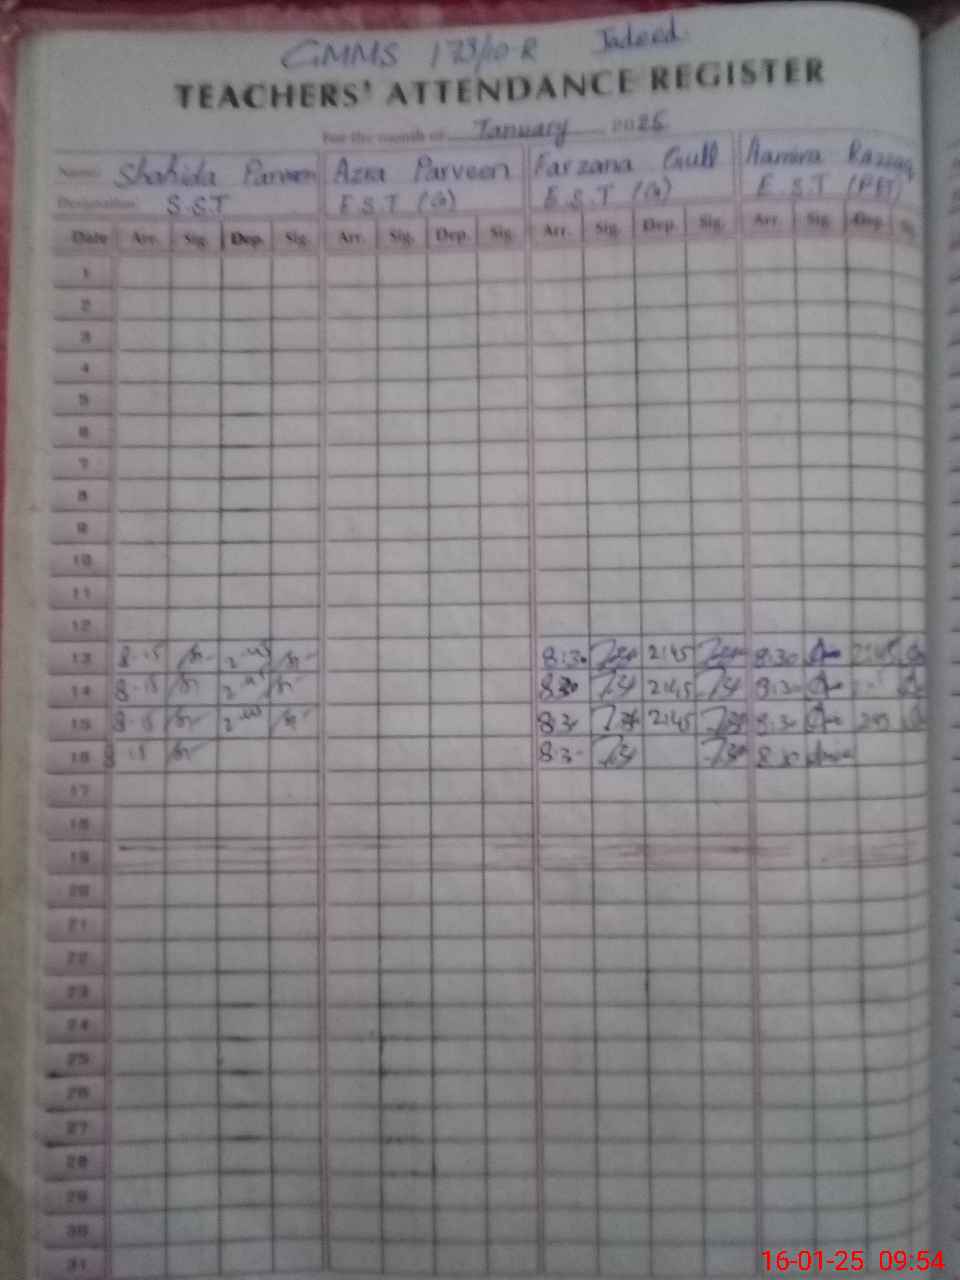 GMMS 173/10-R Jadeed
TEACHERS' ATTENDANCE REGISTER
For the month of January 2025
Name Shahida Parveen Azra Parveen Farzana Gull Aamira Razzaq
Designation S.S.T E.S.T (G) E.S.T (G) E.S.T (PET)
Date Arr. Sig. Dep. Sig. Arr. Sig. Dep. Sig. Arr. Sig. Dep. Sig. Arr. Sig. Dep.
1
2
3
4
5
6
7
8
9
10
11
12
13 8.15 2.45 8:30 2:45 8:30 2:45
14 8.15 2.45 8:30 2:45 8:30
15 8.15 2.45 8:30 2:45 8:30 2:45
16 8.15 8:30 8:30
17
18
19
20
21
22
23
24
25
26
27
28
29
30
31
16-01-25 09:54